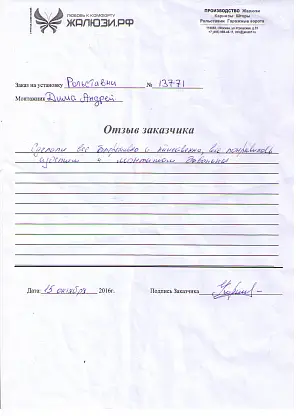 ЛЮБОВЬ К КОМФОРТУ
ЖАЛЮЗИ.РФ
ПРОИЗВОДСТВО Жалюзи
Карнизы Шторы
Рольставни Гаражные ворота
Заказ на установку Рольставни № 13771
Монтажник Дима Андрей
Отзыв заказчика
Сделали все оперативно и качественно, все понравилось
и монтажом довольны
Дата 15 октября 2016г. Подпись Заказчика